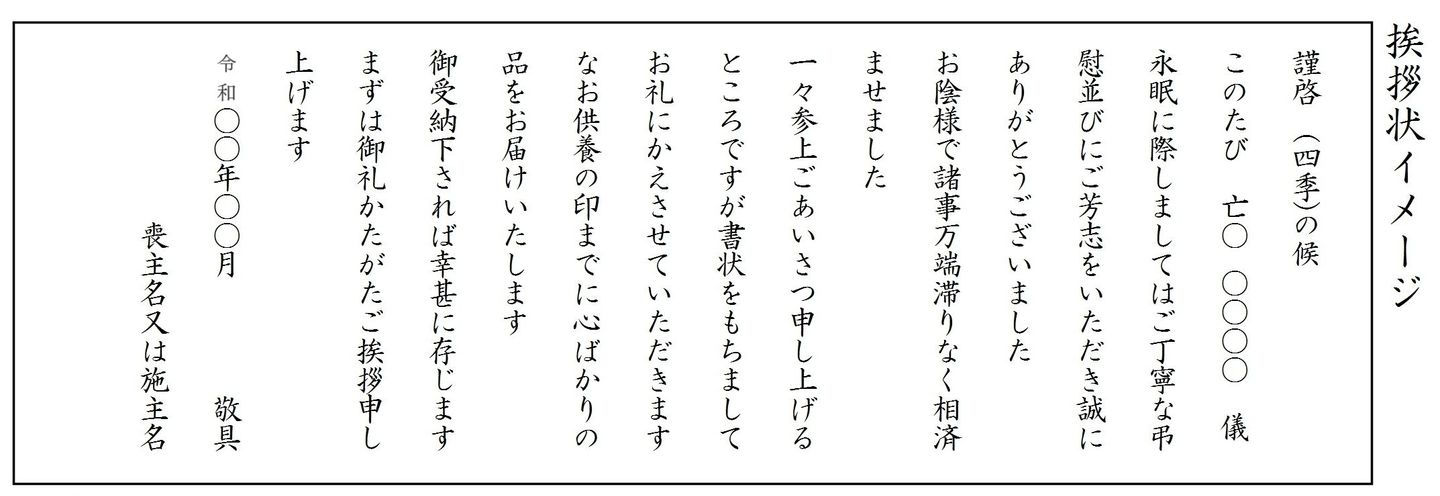 挨拶状イメージ
謹啓　(四季)の候
このたび　亡〇　〇〇〇〇　儀
永眠に際しましてはご丁寧な弔
慰並びにご芳志をいただき誠に
ありがとうございました
お陰様で諸事万端滞りなく相済
ませました
一々参上ごあいさつ申し上げる
ところですが書状をもちまして
お礼にかえさせていただきます
なお供養の印までに心ばかりの
品をお届けいたします
御受納下されば幸甚に存じます
まずは御礼かたがたご挨拶申し
上げます
令和〇〇年〇〇月　敬具
喪主名又は施主名